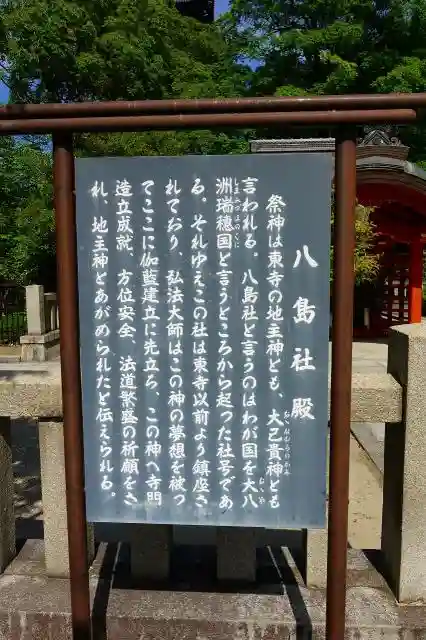 八島社殿
祭神は東寺の地主神とも、大己貴神とも
言われる。八島社と言うのはわが国を大八
洲瑞穂国と言うところから起った社号であ
る。それゆえこの社は東寺以前より鎮座さ
れており、弘法大師はこの神の夢想を被つ
てここに伽藍建立に先立ち、この神へ寺門
造立成就、方位安全、法道繁盛の祈願をさ
れ、地主神とあがめられたと伝えられる。